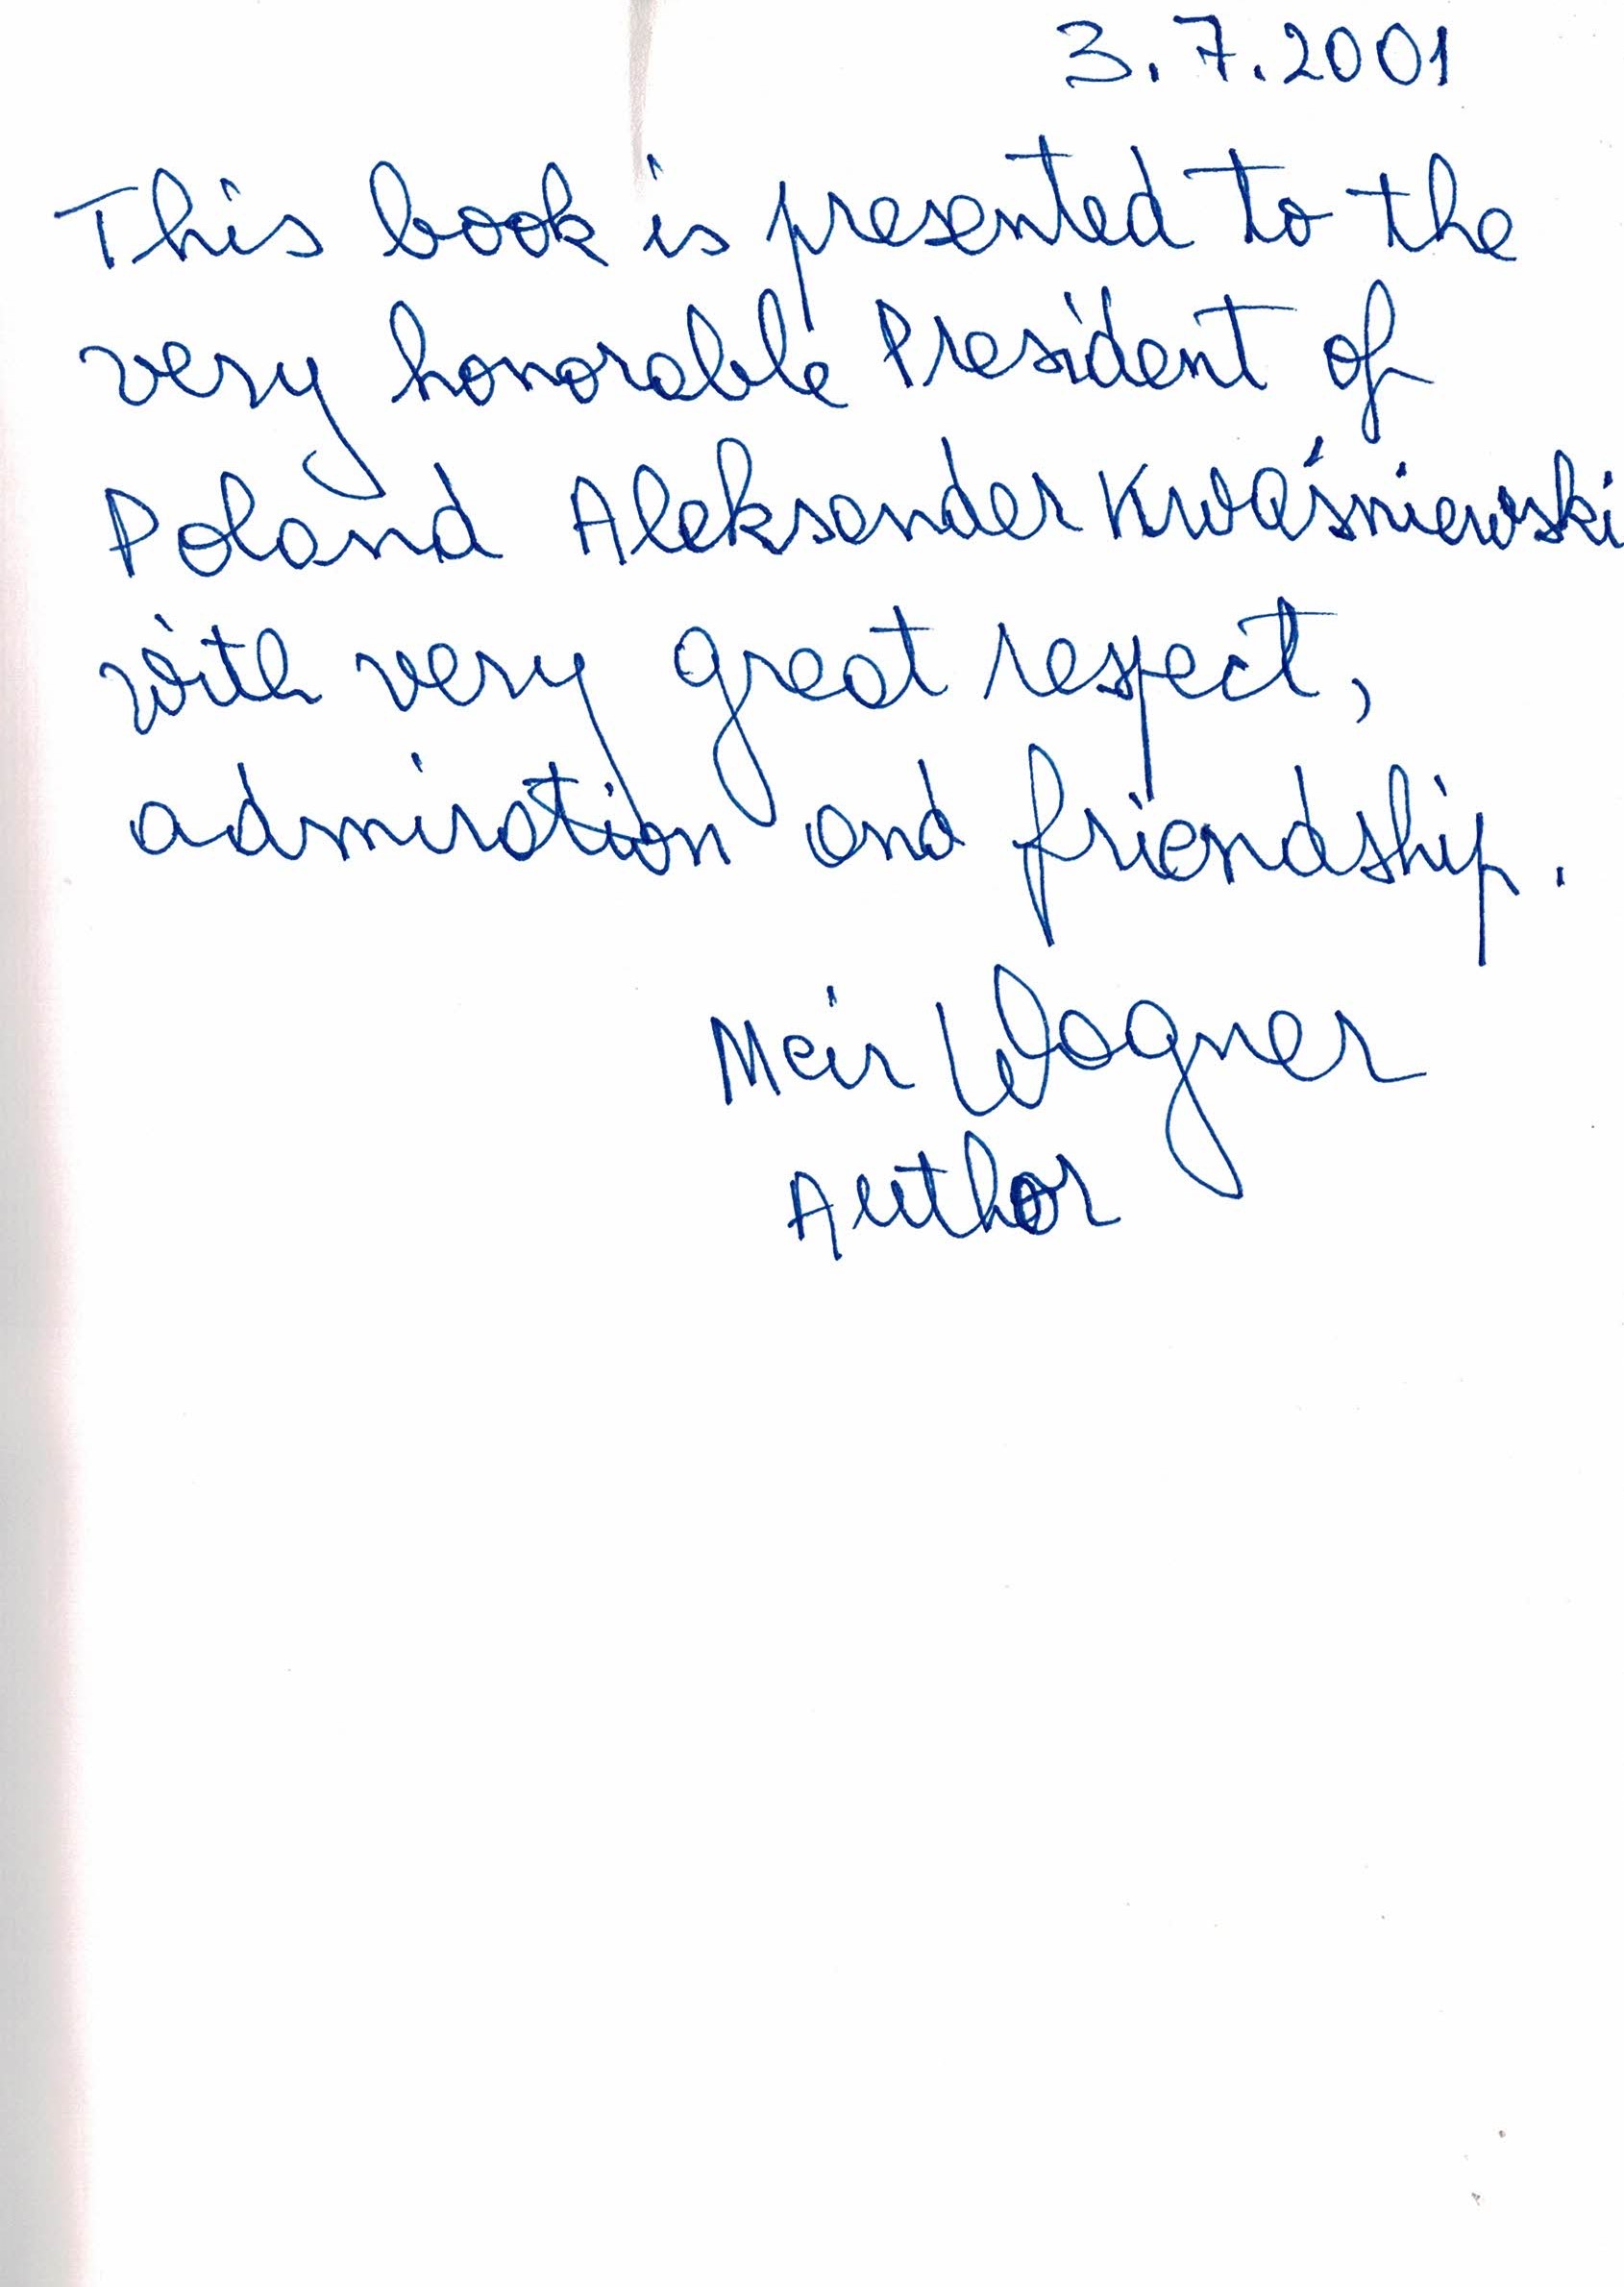 3.7.2001
This book is presented to the
very honorable President of
Poland Aleksander Kwaśniewski
with very great respect,
admiration and friendship.
Meir Wagner
Author